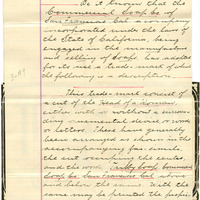 Be it known that the
Commercial Soap Co of
San Francisco Cal a company
incorporated under the laws of
the State of California, being
engaged in the manufacture
and selling of Soaps has adopted
for its use a trade-mark of which
the following is a description
This trade-mark consists of
a cut of the Head of a Woman
either with or without a surroun
ding ornamental device or words
or letters. These have generally
been arranged as shown in the
accompanying fac-simile,
the cut occupying the center
and the words Trilby Soap Commercial
Soap Co San Francisco Cal above
and below the same. With the
same may be printed the